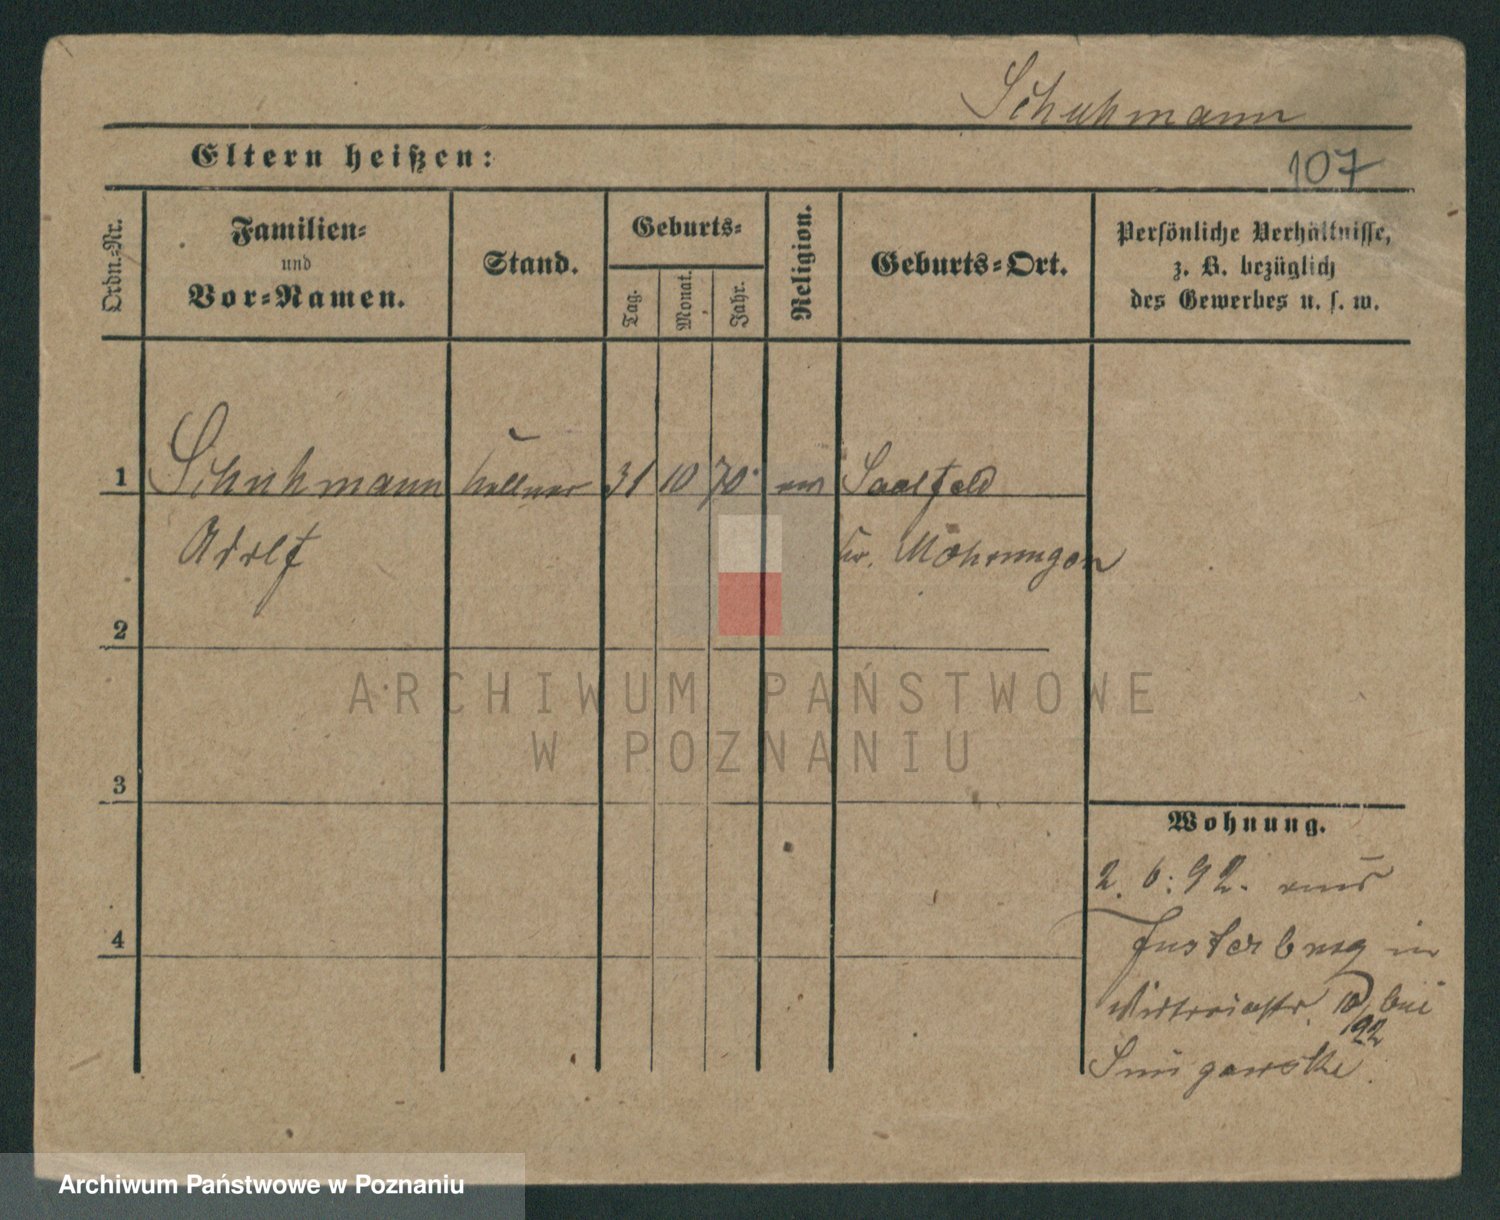 Schuhmann
Eltern heißen:
107
Ordn.-Nr.
Familien-
und
Vor-Namen.
Stand.
Geburts-
Tag.
Monat.
Jahr.
Religion.
Geburts-Ort.
Persönliche Verhältnisse,
z. B. bezüglich
des Gewerbes u. s. w.
1 Schuhmann Kellner 31 10 70. ev Saalfeld
Adolf Kr. Mohrungen
2
3
4
Wohnung.
2. 6. 92. aus
Insterburg in
10, bei
92
ARCHIWUM PAŃSTWOWE
W POZNANIU
Archiwum Państwowe w Poznaniu